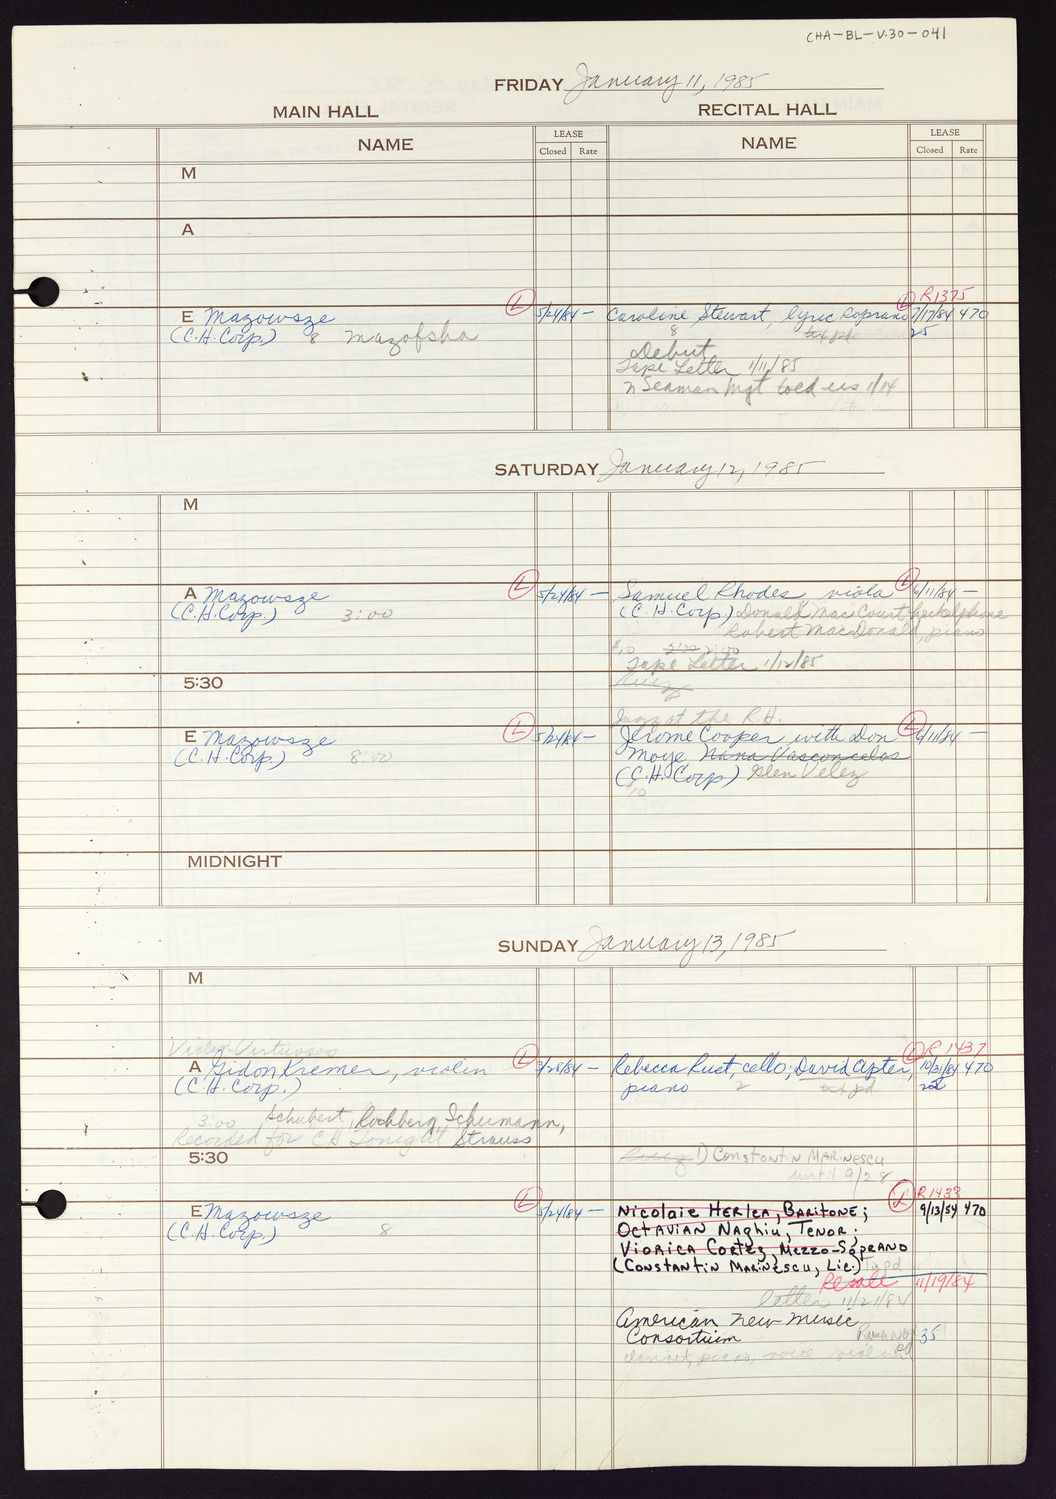 CHA-BL-V.30-041
FRIDAY January 11, 1985
MAIN HALL
RECITAL HALL
NAME
LEASE
Closed
Rate
NAME
LEASE
Closed
Rate
M
A
L
L R1375
E Mazowsze
5/24/84 —
Caroline Stewart, lyric soprano 7/17/84 470
(C.H. Corp.) 8 mazofsha
8 tix pd. 25
Debut
Tape Letter 1/11/85
n Seaman Mgt told us 1/14
SATURDAY January 12, 1985
M
L
L
A Mazowsze
5/24/84 —
Samuel Rhodes, viola 6/11/84 —
(C.H. Corp.) 3:00
(C.H. Corp.) Donald MacCourt, heckelphone
Robert MacDonald, piano
Tape Letter 1/12/85
5:30
Jazz at the R.H.
L
L
E Mazowsze
5/24/84 —
Jerome Cooper with Don 6/11/84 —
(C.H. Corp.) 8:00
Moye Nana Vasconcelos
(C.H. Corp.) Glen Velez
10
MIDNIGHT
SUNDAY January 13, 1985
M
Violin Virtuosos
L
L R 1437
A Gidon Kremer, violin
3/28/84 —
Rebecca Rust, cello; David Apter, 10/31/84 470
(C.H. Corp.)
piano 2 tix pd
3:00 Schubert, Rochberg, Schumann,
Recorded for CH Tonight Strauss
5:30
1) Constantin Marinescu
until 9/28
L
L R1433
E Mazowsze
5/24/84 —
Nicolaie Herlea, Baritone; 9/13/84 470
(C.H. Corp.) 8
Octavian Naghiu, Tenor;
Viorica Cortez, Mezzo-Soprano
(Constantin Marinescu, Lic.) Tix pd
Resale 11/19/84
letter 11/21/84
American New Music
Consortium
35
clarinet, piano, voice